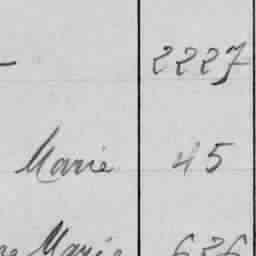 — 2227
Marie 45
Marie 636